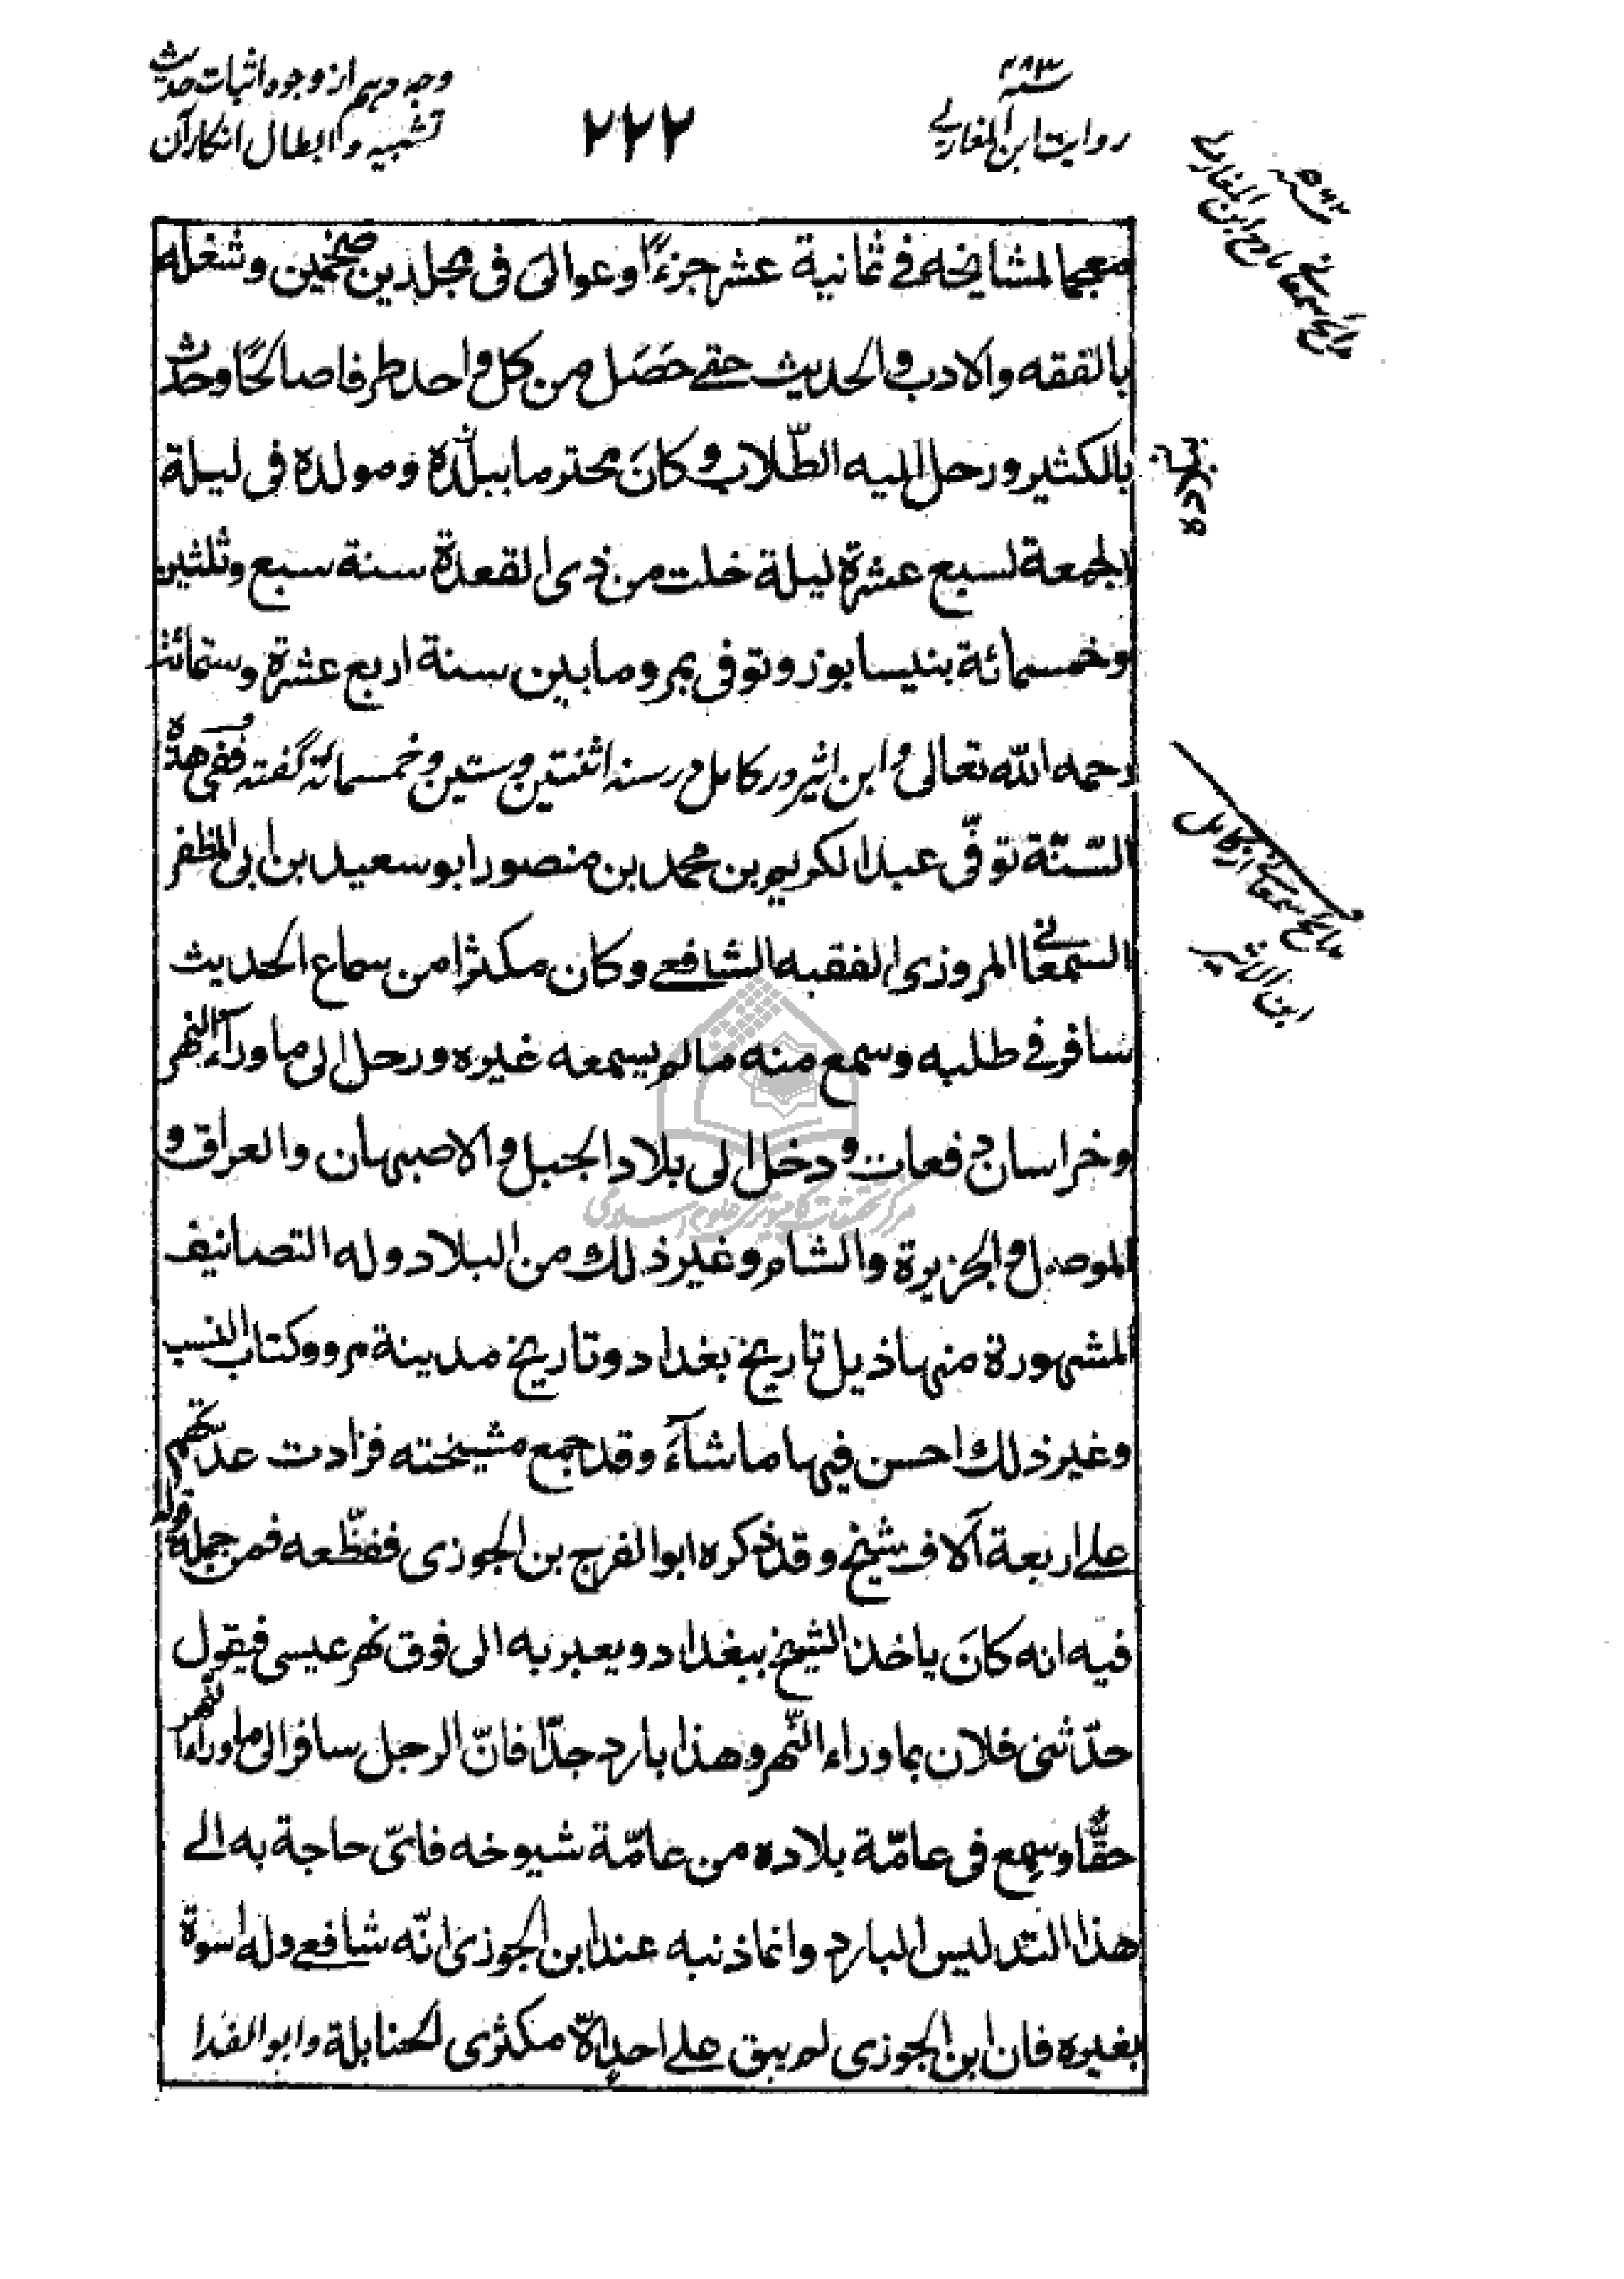 وجه دهم از وجوه اثبات حدیث
تشبیه و ابطال انکار آن
۲۲۲
سنه ۴۸۳
روایت ابن المغازلی
سنه ۵۶۲
مدائح سمعانی مادح ابن المغازلی
معجما لمشایخه فی ثمانیة عشر جزءًا وعوالی فی مجلدین ضخمین وشغله
بالفقه والادب والحدیث حتی حَصَل من کل واحد طرفا صالحًا وحدّث
بالکثیر ورحل الیه الطّلاب وکانَ محترما ببلده ومولده فی لیلة
الجمعة لسبع عشرة لیلة خلت من ذی القعدة سنة سبع وثلثین
وخمسمائة بنیسابور وتوفی بمرو ما بین سنة اربع عشرة وستمائة
رحمه الله تعالی و ابن اثیر در کامل در سنه اثنتین وستین وخمسمائة گفته وفی هذه
السّنّة توفّی عبد الکریم بن محمد بن منصور ابو سعید بن ابی المظفر
السمعانی المروزی الفقیه الشافعی وکان مکثرا من سماع الحدیث
سافر فی طلبه وسمع منه ما لم یسمعه غیره ورحل الی ماوراء النهر
وخراسان دفعات ودخل الی بلاد الجبل والاصبهان والعراق و
الموصل والجزیرة والشام وغیر ذلك من البلاد وله التصانیف
المشهورة منها ذیل تاریخ بغداد وتاریخ مدینة مرو وکتاب النسب
وغیر ذلك احسن فیها ما شآءَ وقد جمع مشیخته فزادت عدّتهم
علی اربعة آلاف شیخ وقد ذکره ابو الفرج بن الجوزی ففظّعه فمن جملة قوله
فیه انه کانَ یاخذ الشیخ ببغداد ویعبر به الی فوق نهر عیسی فیقول
حدّثنی فلان بماوراء النّهر وهذا بارد جدّا فانّ الرجل سافر الی ماوراء النهر
حقًّا وسمع فی عامّة بلاده من عامّة شیوخه فایّ حاجة به الی
هذا التدلیس البارد وانما ذنبه عند ابن الجوزی انّه شافعی وله اسوة
بغیره فان ابن الجوزی لم یبق علی احد الّا مکثری الحنابلة وابو الفدا
مدائح سمعانی از کامل
ابن الاثیر
مرکز تحقیقات کامپیوتری علوم اسلامی